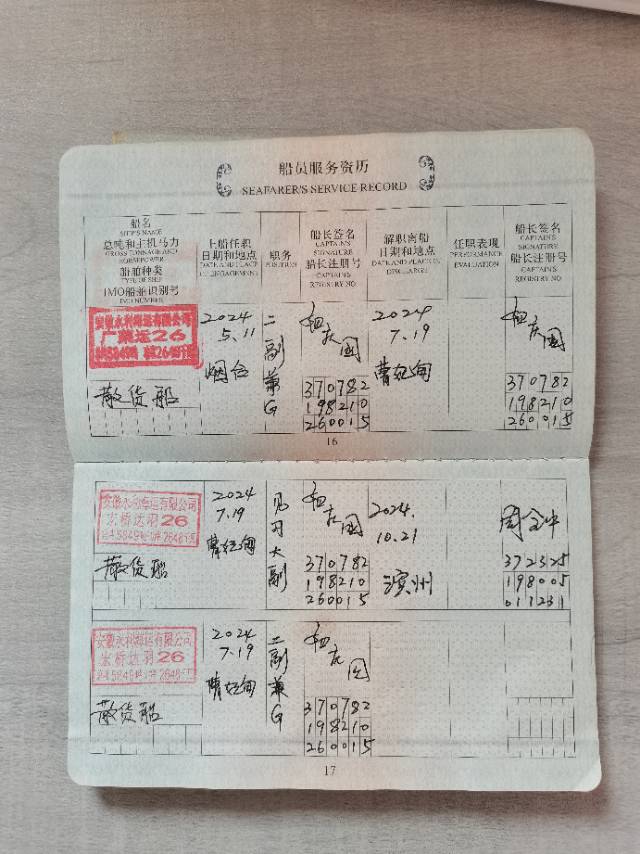 船员服务资历
SEAFARER'S SERVICE RECORD
船名
SHIP'S NAME
总吨和主机马力
GROSS TONNAGE AND
HORSEPOWER
船舶种类
TYPE OF SHIP
IMO船舶识别号
IMO NUMBER
上船任职
日期和地点
DATE AND PLACE
OF ENGAGEMENT
职务
POSITION
船长签名
CAPTAIN'S
SIGNATURE
船长注册号
CAPTAIN'S
REGISTRY NO
解职离船
日期和地点
DATE AND PLACE OF
DISCHARGE
任职表现
PERFORMANCE
EVALUATION
船长签名
CAPTAIN'S
SIGNATURE
船长注册号
CAPTAIN'S
REGISTRY NO
安徽永利海运有限公司
26
散货船
2024
5.11
烟台
二副兼G
庆国
370782
198210
260015
2024
7.19
曹妃甸
庆国
370782
198210
260015
16
安徽永利海运有限公司
宏桥达羽26
散货船
2024
7.19
曹妃甸
见习大副
庆国
370782
198210
260015
2024.
10.21
滨州
372325
198005
011231
安徽永利海运有限公司
宏桥达羽26
散货船
2024
7.19
曹妃甸
二副兼G
庆国
370782
198210
260015
17